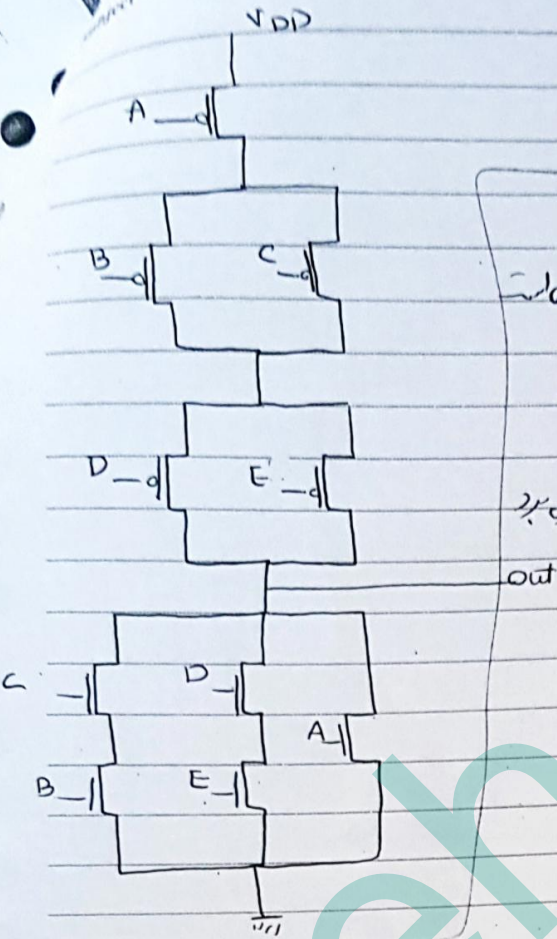 VDD
A
B C
D E
out
C D
A
B E